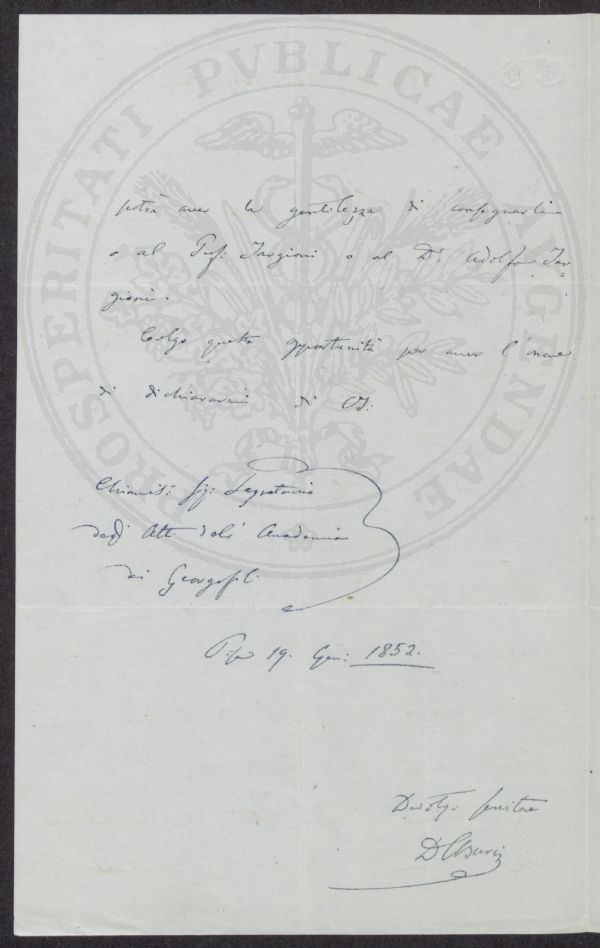 PROSPERITATI PVBLICAE AVGENDAE
potrà aver la gentilezza di consegnarli
o al Prof. Targioni o al Dr. Adolfo Tar
gioni.
Colgo questa opportunità per aver l'onore
di dichiararmi di
Chiariss: Sig: Segretario
degli Atti dell' Accademia
dei Georgofili
Pisa 19. Gen: 1852.
servitore